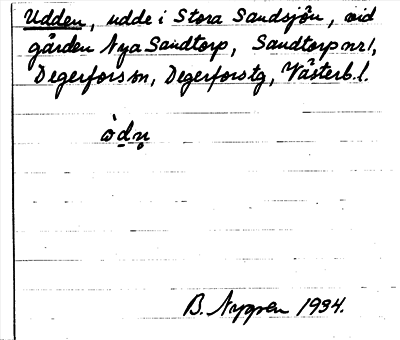 Udden, udde i Stora Sandsjön, vid
gården Nya Sandtorp, Sandtorp nr 1,
Degerfors sn, Degerfors tg, Västerb. l.
òdṇ
B. Nygren 1934.